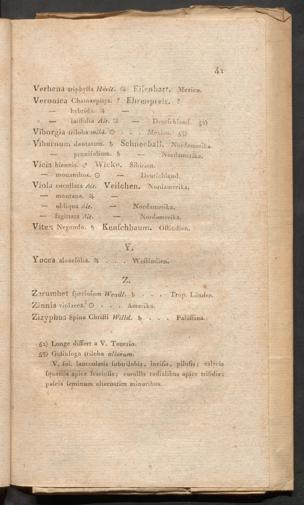 41
Verbena triphylla Hérit. ♃ Eisenhart. Mexico.
Veronica Chamaepitys. ? Ehrenpreis. ?
— hybrida. ♃ —
— latifolia Ait. ♃ — Deutschland. 52)
Viborgia triloba mild. ☉ . . . Mexico. 53)
Viburnum dentatum. ♄ Schneeball. Nordamerika.
— prunifolium. ♄ — Nordamerika.
Vicia biennis. ♂ Wicke. Sibirien.
— monanthos. ☉ — Deutschland.
Viola cucullata Ait. Veilchen. Nordamerika.
— montana. ♃ —
— obliqua Ait. — Nordamerika.
— sagittata Ait. — Nordamerika.
Vitex Negundo. ♄ Keuschbaum. Ostindien.
Y.
Yucca aloëfolia. ♄ . . . Westindien.
Z.
Zerumbet speciosum Wendl. ♄ . . . Trop. Länder.
Zinnia violacea. ☉ . . . Amerika.
Zizyphus Spina Christi Willd. ♄ . . . Palästina.
52) Longe differt a V. Teucrio.
53) Galinsoga triloba aliorum.
V. fol. lanceolatis subtrilobis, incisis, pilosis; calycis
squamis apice fuscis; corollis radialibus apice trifidis;
paleis seminum alternatim minoribus.